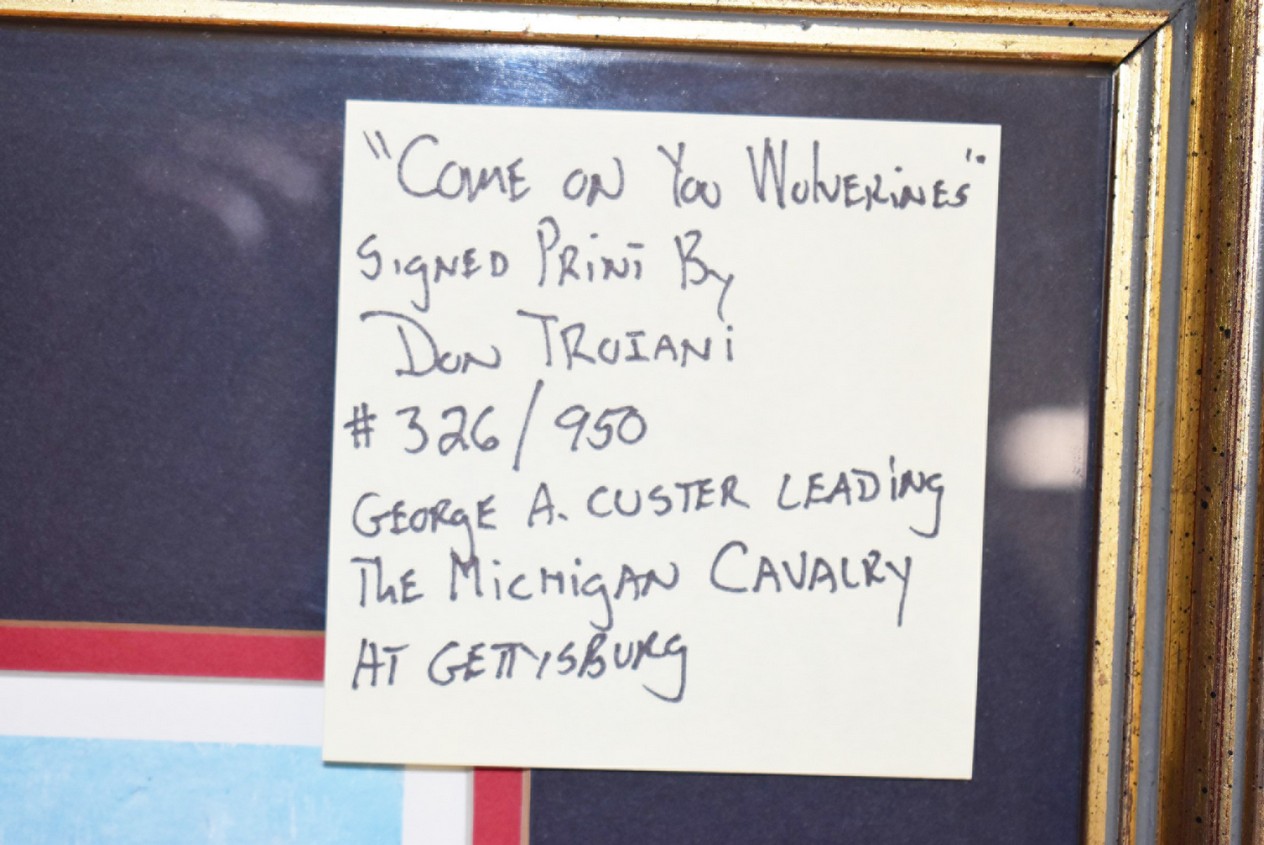 "Come on You Wolverines".
Signed Print By
Don Troiani
# 326/950
George A. Custer Leading
The Michigan Cavalry
At Gettysburg